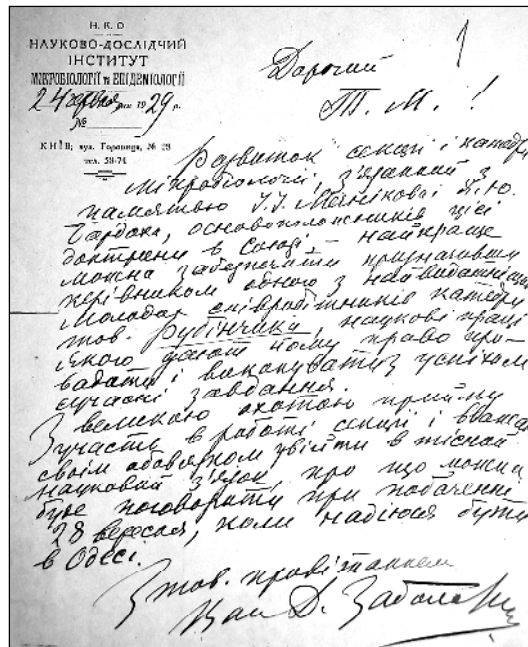 Н. К. О
НАУКОВО-ДОСЛІДЧИЙ
ІНСТИТУТ
МІКРОБІОЛОГІЇ та ЕПІДЕМІОЛОГІЇ
24 дня 1929 р.
№
КИЇВ; вул. Горовиця, №
тел. 58-74
1
Дорогий
Т. М. !
Розвиток секції і катедри
мікробіології, з'язаний з
памяттю І. І. Мечнікова і
основоположників цієї
доктрини в Союзі, – найкраще
можна забезпечити призначивши
керівником одного з найвидатніших
молодих співробітників катедри
тов. Рубінчика, наукові праці
якого дають йому право про-
вадити і виконувати з успіхом
сучасні завдання.
З великою охотою прийму
участь в роботі секції і вважаю
своїм обовязком увійти в тісний
науковий з'язок, про що можна
буде поговорити при побаченні
28 вересня, коли надіюся бути
в Одесі.
З тов. привітанням
Ваш Д. Заболотний